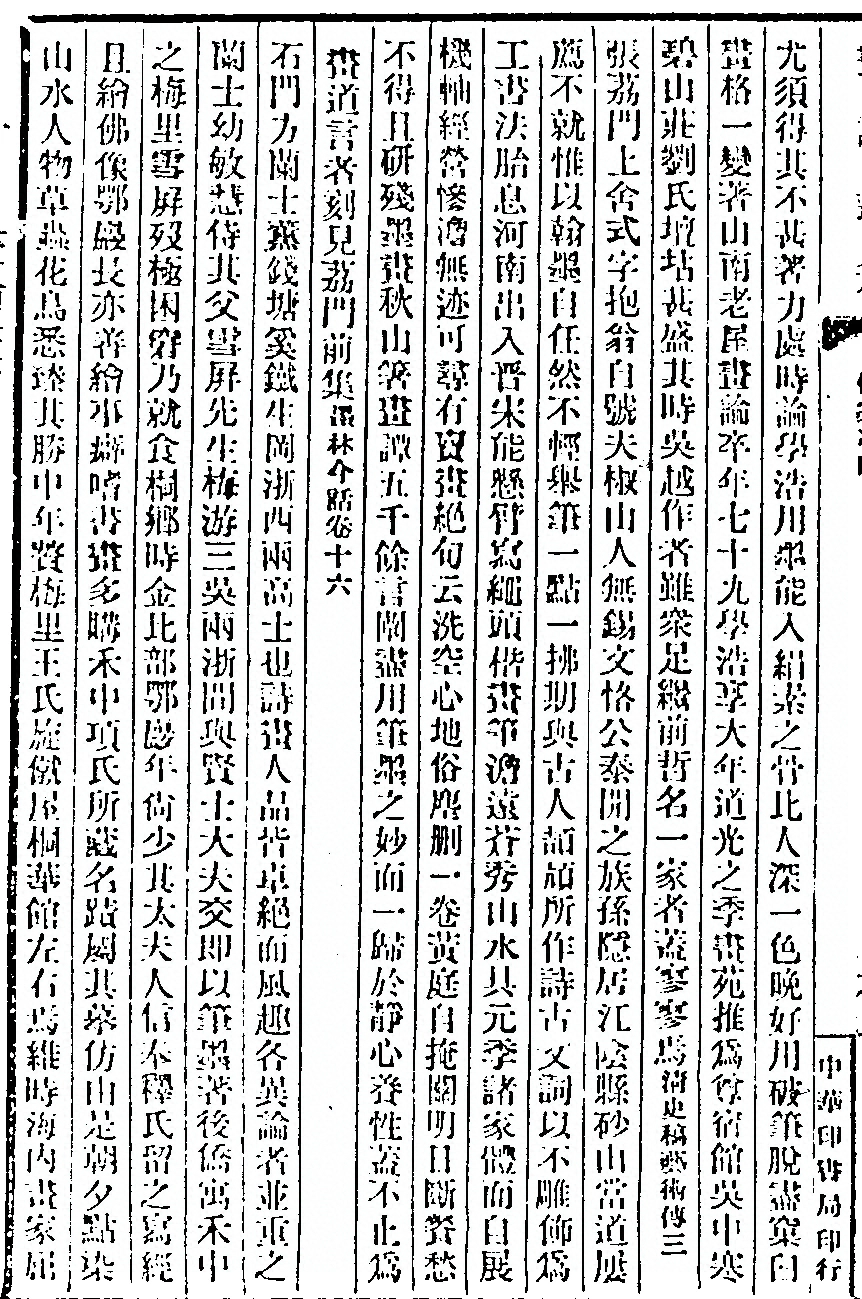 尤須得其不甚著力處時論學浩用墨能入絹素之骨比人深一色晚好用破筆脫盡窠臼
畫格一變著山南老屋畫論卒年七十九學浩享大年道光之季畫苑推爲尊宿館吳中寒
碧山莊劉氏壇坫甚盛其時吳越作者雖衆足繼前哲名一家者蓋寥寥焉清史稿藝術傳三
張荔門上舍式字抱翁自號夫椒山人無錫文恪公泰開之族孫隱居江陰縣砂山當道屢
薦不就惟以翰墨自任然不輕舉筆一點一拂期與古人頡頏所作詩古文詞以不雕飾爲
工書法胎息河南出入晉宋能懸臂寫繩頭楷畫筆澹遠蒼秀山水具元季諸家體而自展
機軸經營慘澹無迹可尋有賣畫絕句云洗空心地俗塵刪一卷黃庭自掩關明日斷餐愁
不得且研殘墨畫秋山箸畫譚五千餘言闡盡用筆墨之妙而一歸於靜心養性蓋不止爲
畫道言者刻見荔門前集墨林今話卷十六
石門方蘭士薰錢塘奚鐵生岡浙西兩高士也詩畫人品皆卓絕而風趣各異論者並重之
蘭士幼敏慧侍其父雪屏先生梅游三吳兩浙間與賢士大夫交即以筆墨著後僑寓禾中
之梅里雪屏歿極困窘乃就食桐鄉時金比部鄂巖年尙少其太夫人信奉釋氏留之寫經
且繪佛像鄂巖長亦善繪事癖嗜書畫多購禾中項氏所藏名蹟屬其摹仿由是朝夕點染
山水人物草蟲花鳥悉臻其勝中年贅梅里王氏旋僦屋桐華館左右焉維時海內畫家屈
中華印書局印行